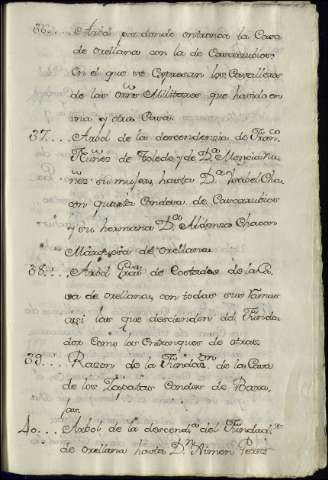 36... Arbol por donde entronca la Casa
de orellana con la de Casarrubios
en el que se expresan los Cavalleros
de las Ordes Militares que ha havido en
una y otra Casa.
37... Arbol de la descendenzia de Franco
Nuñez de Toledo y de Da Menzia Nu
ñez su muger, hasta Da Ysabel Cha
con quarta Condesa de Casarrubios
y su hermana Da Alfonsa Chacon
Marquesa de orellana
38... Arbol Gral de Costados de la Ca
sa de orellana, con todas sus ramas
assi las que descienden del Funda
dor como los entronques de atras.
39... Razon de la Fundaon de la Casa
de los Zapatas Condes de Baraa
jas.
40... Arbol de la descenda del Fundador
de orellana hasta Dn Ximon Perez